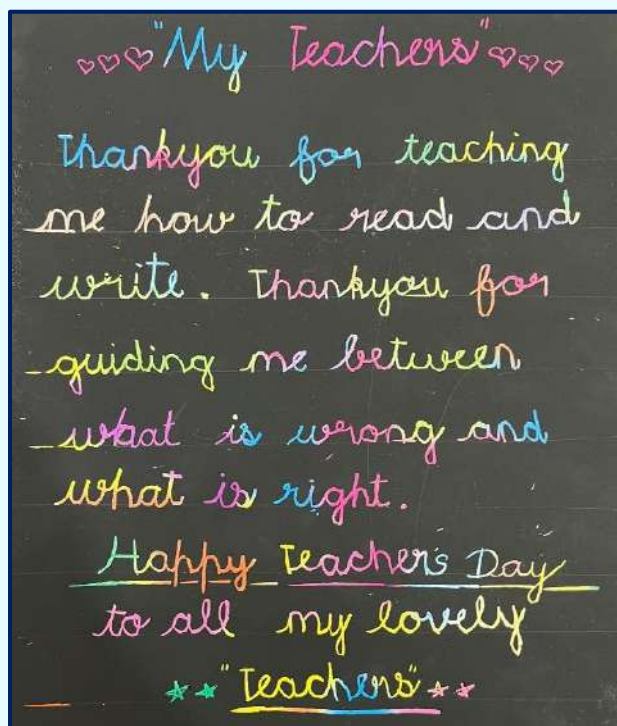 "My Teachers"
Thankyou for teaching
me how to read and
write. Thankyou for
guiding me between
what is wrong and
what is right.
Happy Teacher's Day
to all my lovely
"Teachers"